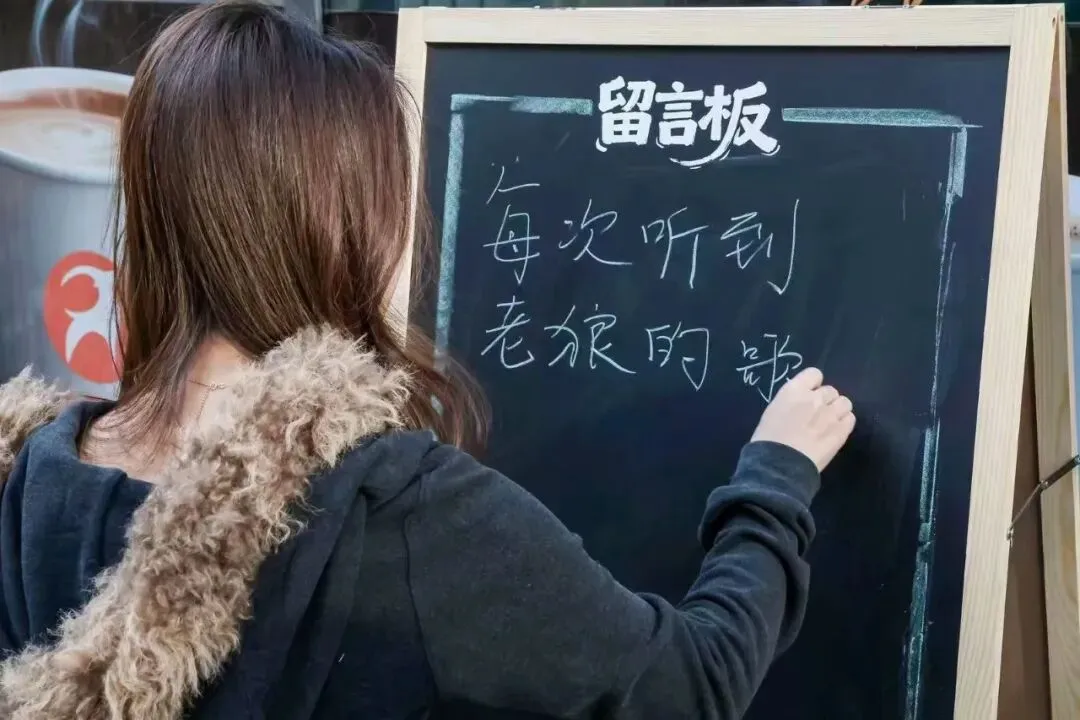 留言板
每次听到
老狼的歌